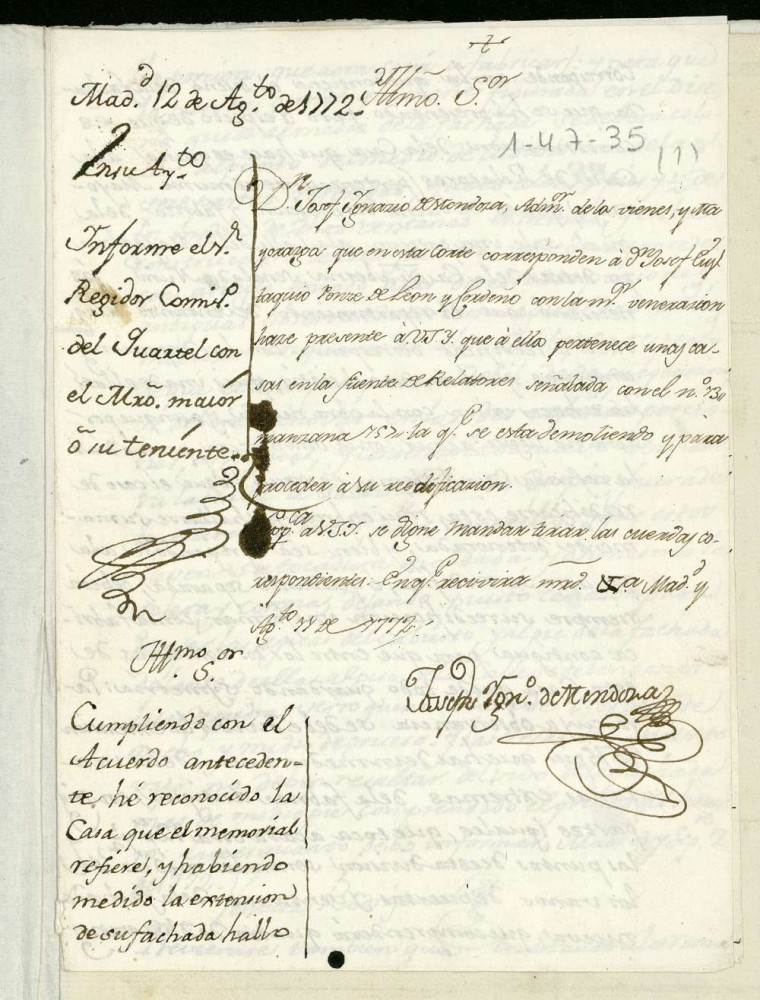 Mad.d 12 de Ag.to de 1772.
Illmo. S.or
1-47-35
(1)
En su Ay.to
Informe el s.r
Regidor Comis.o
del Quartel con
el Mrõ. maior
õ su teniente.
D.n Josef Ignacio de Mendoza, Adm.r de los vienes, y Ma
yorazgo que en esta Corte corresponden à D.n Josef Eus
taquio Ponze de Leon y Cordeño con la m.or venerazion
haze presente à V.S.Y. que à ello pertenece unas ca-
sas en la fuente de Relatores señalada con el n.o
manzana 157. la q.e se esta demoliendo y para
proceder à su redificazion.
Sup.ca a V.S.Y. se digne mandar tirar las cuerdas co-
rrespondientes: En q.e recivira mrd. Mad.d y
Ag.to 11 de 1772.
Joseph Ygn.o de Mendoza
Illmo. S.or
Cumpliendo con el
Acuerdo anteceden-
te, hé reconocido la
Casa que el memorial
refiere, y habiendo
medido la extension
de su fachada hallo